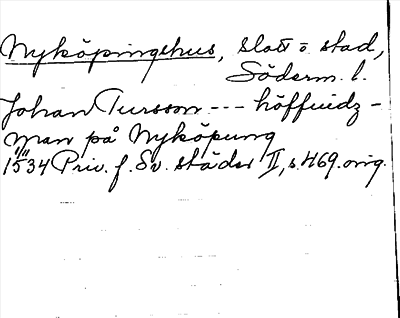 Nyköpingehus, slott o. stad,
Söderm. l.
Johan Tursson --- höffuidz-
man på Nyköpung
1534 Priv. f. Sv. städer II, s. 469. orig.